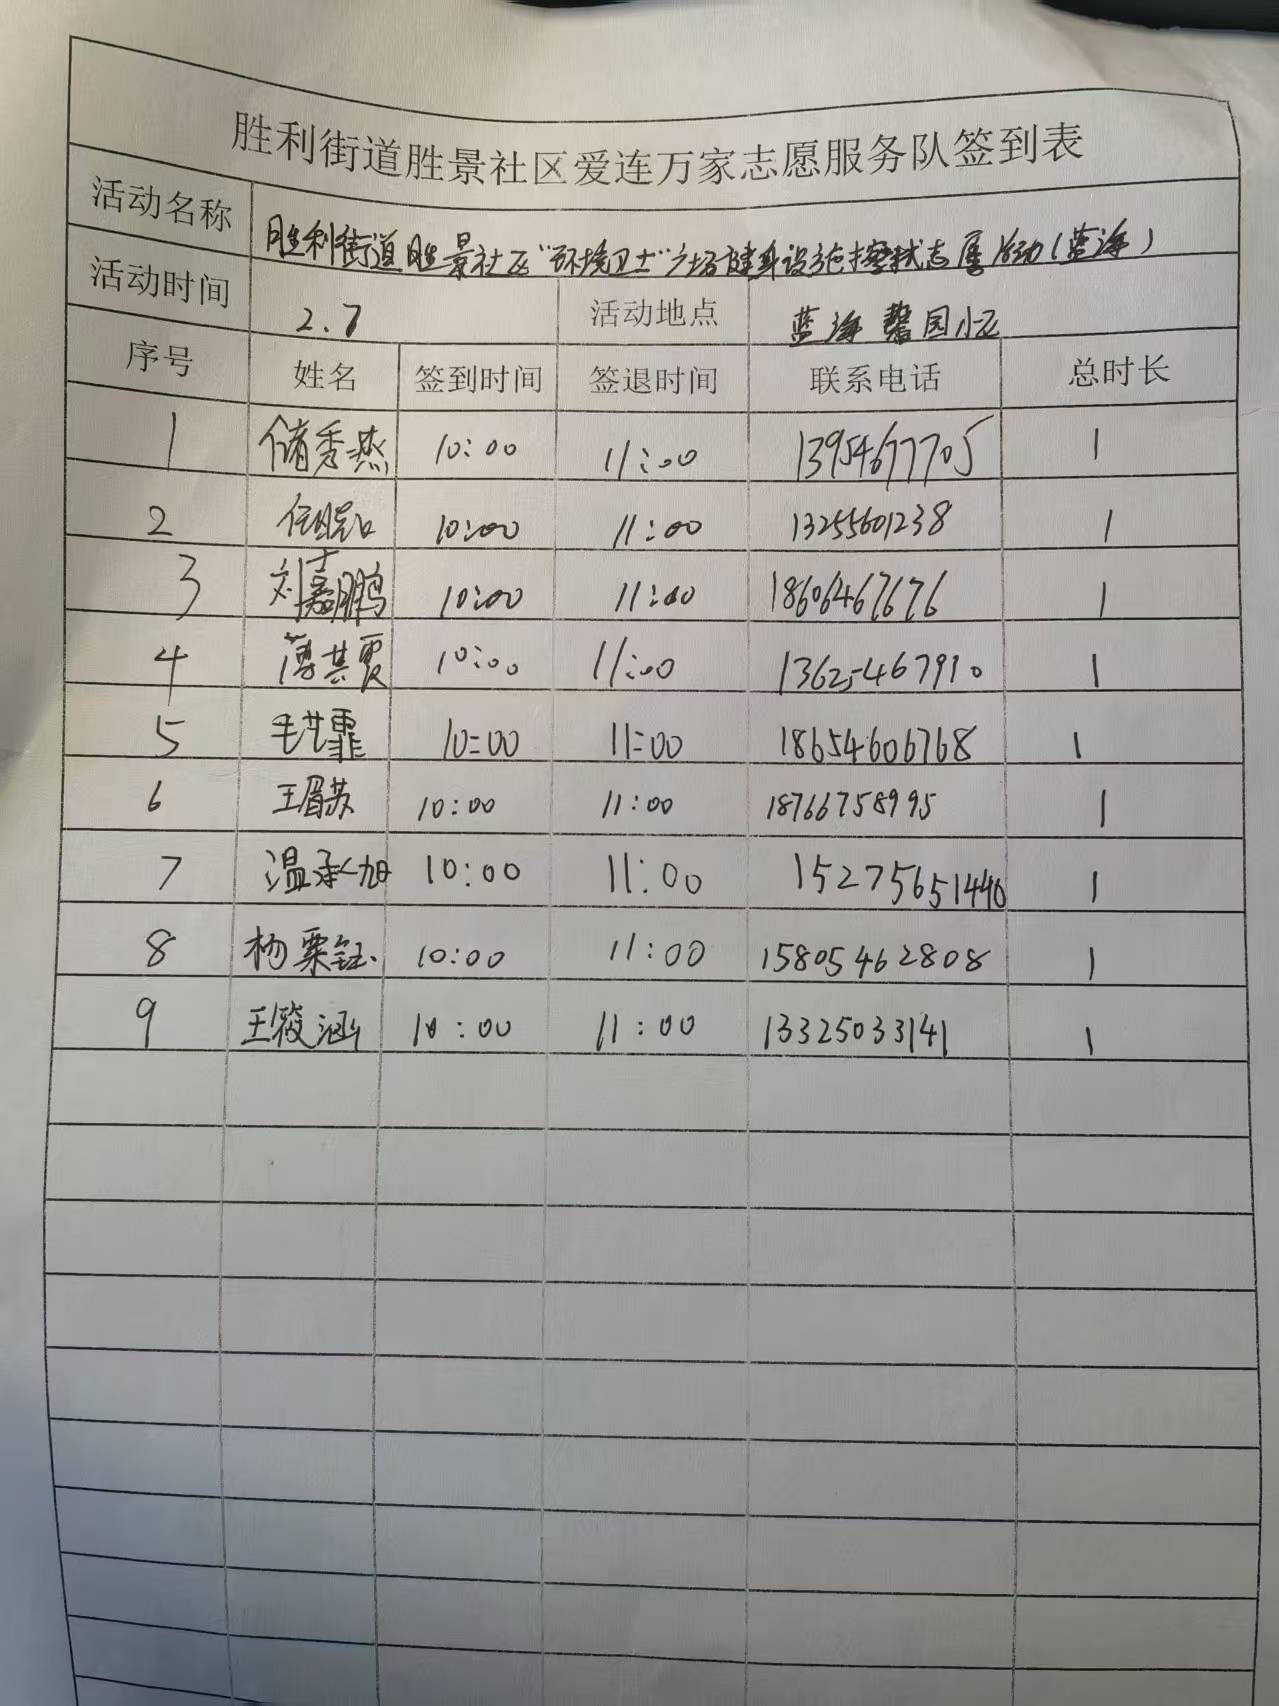 胜利街道胜景社区爱连万家志愿服务队签到表
活动名称 胜利街道胜景社区“环境卫士”广场健身设施擦拭志愿活动(蓝海)
活动时间 2.7 活动地点 蓝海碧园小区
序号 姓名 签到时间 签退时间 联系电话 总时长
1 储秀燕 10:00 11:00 13954677705 1
2 10:00 11:00 13255601238 1
3 刘嘉鹏 10:00 11:00 18606467676 1
4 薄其霞 10:00 11:00 13625467910 1
5 毛艺霏 10:00 11:00 18654606768 1
6 王眉苏 10:00 11:00 18766758995 1
7 温承旭 10:00 11:00 15275651440 1
8 杨栗钰 10:00 11:00 15805462808 1
9 王筱涵 10:00 11:00 13325033141 1